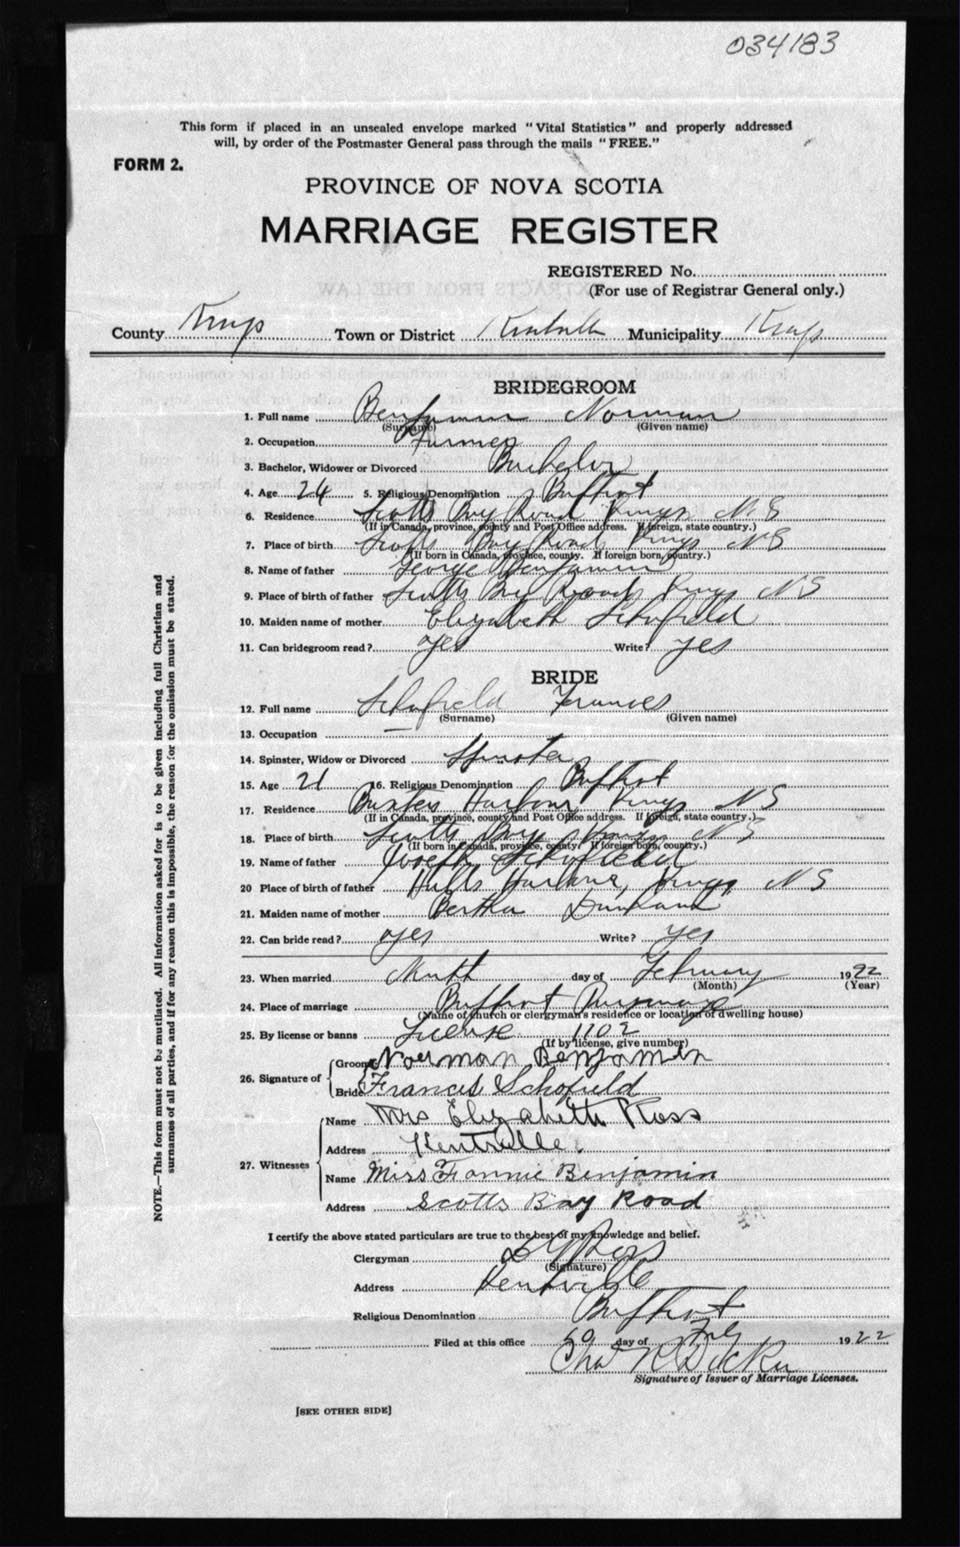 034183
This form if placed in an unsealed envelope marked "Vital Statistics" and properly addressed
will, by order of the Postmaster General pass through the mails "FREE."
FORM 2.
PROVINCE OF NOVA SCOTIA
MARRIAGE REGISTER
REGISTERED No.
(For use of Registrar General only.)
County Kings Town or District Kentville Municipality Kings
BRIDEGROOM
1. Full name Benjamin Norman
(Surname) (Given name)
2. Occupation Farmer
3. Bachelor, Widower or Divorced Bachelor
4. Age 24 5. Religious Denomination Baptist
6. Residence Scotts Bay Road Kings N S
(If in Canada, province, county and Post Office address. If foreign, state country.)
7. Place of birth Scotts Bay Road Kings N S
(If born in Canada, province, county. If foreign born, country.)
8. Name of father George Benjamin
9. Place of birth of father Scotts Bay Road Kings N S
10. Maiden name of mother Elizabeth Schofield
11. Can bridegroom read? yes Write? yes
BRIDE
12. Full name Schofield Frances
(Surname) (Given name)
13. Occupation —
14. Spinster, Widow or Divorced Spinster
15. Age 21 16. Religious Denomination Baptist
17. Residence Baxters Harbour Kings N S
(If in Canada, province, county and Post Office address. If foreign, state country.)
18. Place of birth Scotts Bay Kings N S
(If born in Canada, province, county. If foreign born, country.)
19. Name of father Joseph Schofield
20 Place of birth of father Halls Harbour, Kings N S
21. Maiden name of mother Bertha
22. Can bride read? yes Write? yes
23. When married Ninth day of February 1922
(Month) (Year)
24. Place of marriage Baptist Parsonage
(Name of church or clergyman's residence or location of dwelling house)
25. By license or banns License 1102
(If by license, give number)
26. Signature of Groom Norman Benjamin
Bride Frances Schofield
27. Witnesses Name Mrs Elizabeth Ross
Address Kentville.
Name Miss Fannie Benjamin
Address Scotts Bay Road
I certify the above stated particulars are true to the best of my knowledge and belief.
Clergyman Ross
(Signature)
Address Kentville
Religious Denomination Baptist
Filed at this office day of Feb 1922
Signature of Issuer of Marriage Licenses.
[SEE OTHER SIDE]
NOTE.—This form must not be mutilated. All information asked for is to be given including full Christian and
surnames of all parties, and if for any reason this is impossible, the reason for the omission must be stated.